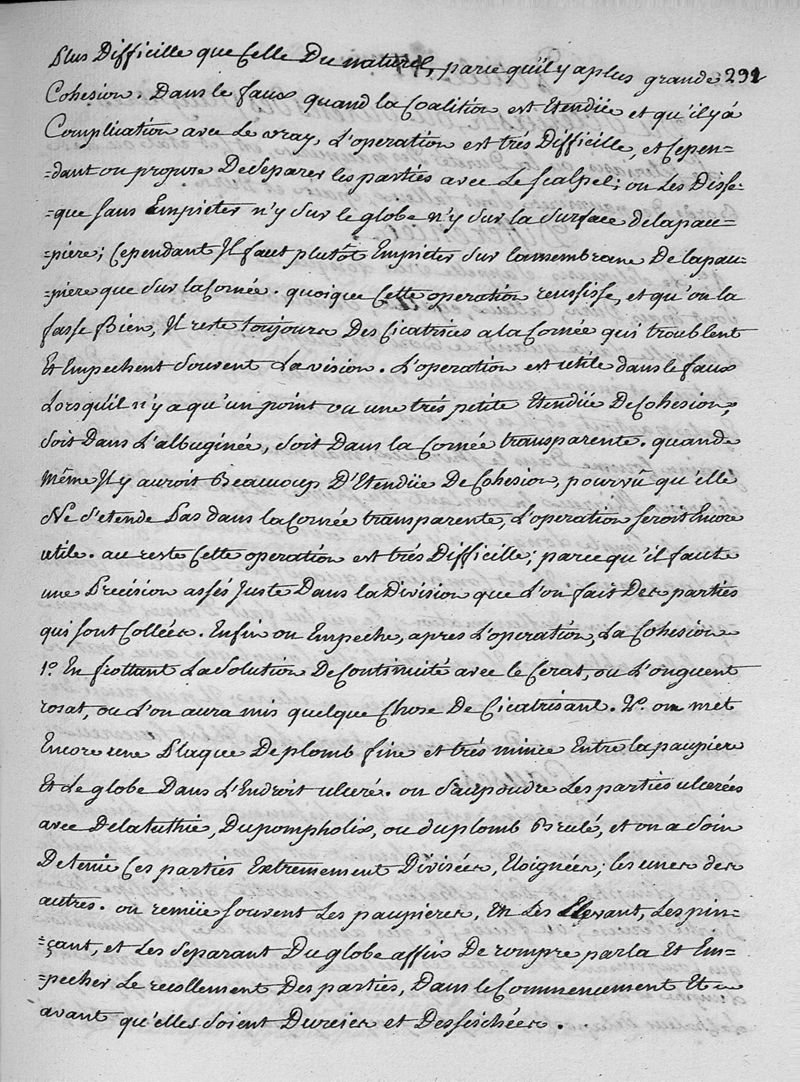 plus Difficille que Celle Du naturel, parce qu'il y a plus grande 291
Cohesion. Dans le faux quand la Coalition est Etendüe et qu'il y á
Complication avec Le vray, L'operation est trés Difficille, et Cepen-
-dant on propose De Separer les parties avec Le Scalpel; on Les Disse-
-que sans Empieter n'y Sur le globe n'y Sur la Surface de la pau-
-piere; Cependant Il faut plutôt Empieter Sur la membrane De la pau-
-piere que Sur la Cornée. quoique Cette operation reussisse, et qu'on la
fasse Bien, Il reste toujours Des Cicatrices a la Cornée qui troublent
Et Empechent Souvent La vision. L'operation est utile dans le faux
Lorsqu'il n'y a qu'un point ou une trés petite Etendüe De Cohesion,
Soit Dans L'albuginée, Soit Dans la Cornée transparente. quand
même Il y auroit Beaucoup D'Etendüe De Cohesion, pourvû qu'elle
Ne s'etende Pas dans la Cornée transparente, L'operation seroit Encore
utile. au reste Cette operation est trés Difficille; parce qu'il faut
une Précision assés Juste Dans la Division que L'on fait Des parties
qui sont Collées. Enfin on Empeche, apres L'operation, La Cohesion
1.º En frottant La Solution De Continuité avec le Cerat, ou L'onguent
rosat, ou L'on aura mis quelque Chose De Cicatrisant. 2.º on met
Encore une Plaque De plomb fine et trés mince Entre la paupiere
Et Le globe Dans L'Endroit ulceré. on Saupoudre Les parties ulcerées
avec De la tuthie, Du pompholix, ou du plomb Brulé, et on a Soin
De tenir Ces parties Extremement Divisées, Eloignées; les unes des
autres. on remüe souvent Les paupieres, En Les Elevant, Les pin-
-çant, et Les Separant Du globe affin De rompre par la Et Em-
-pecher Le recollement Des parties, Dans le Commencement Et
avant qu'elles Soient Durcies et Dessechées.